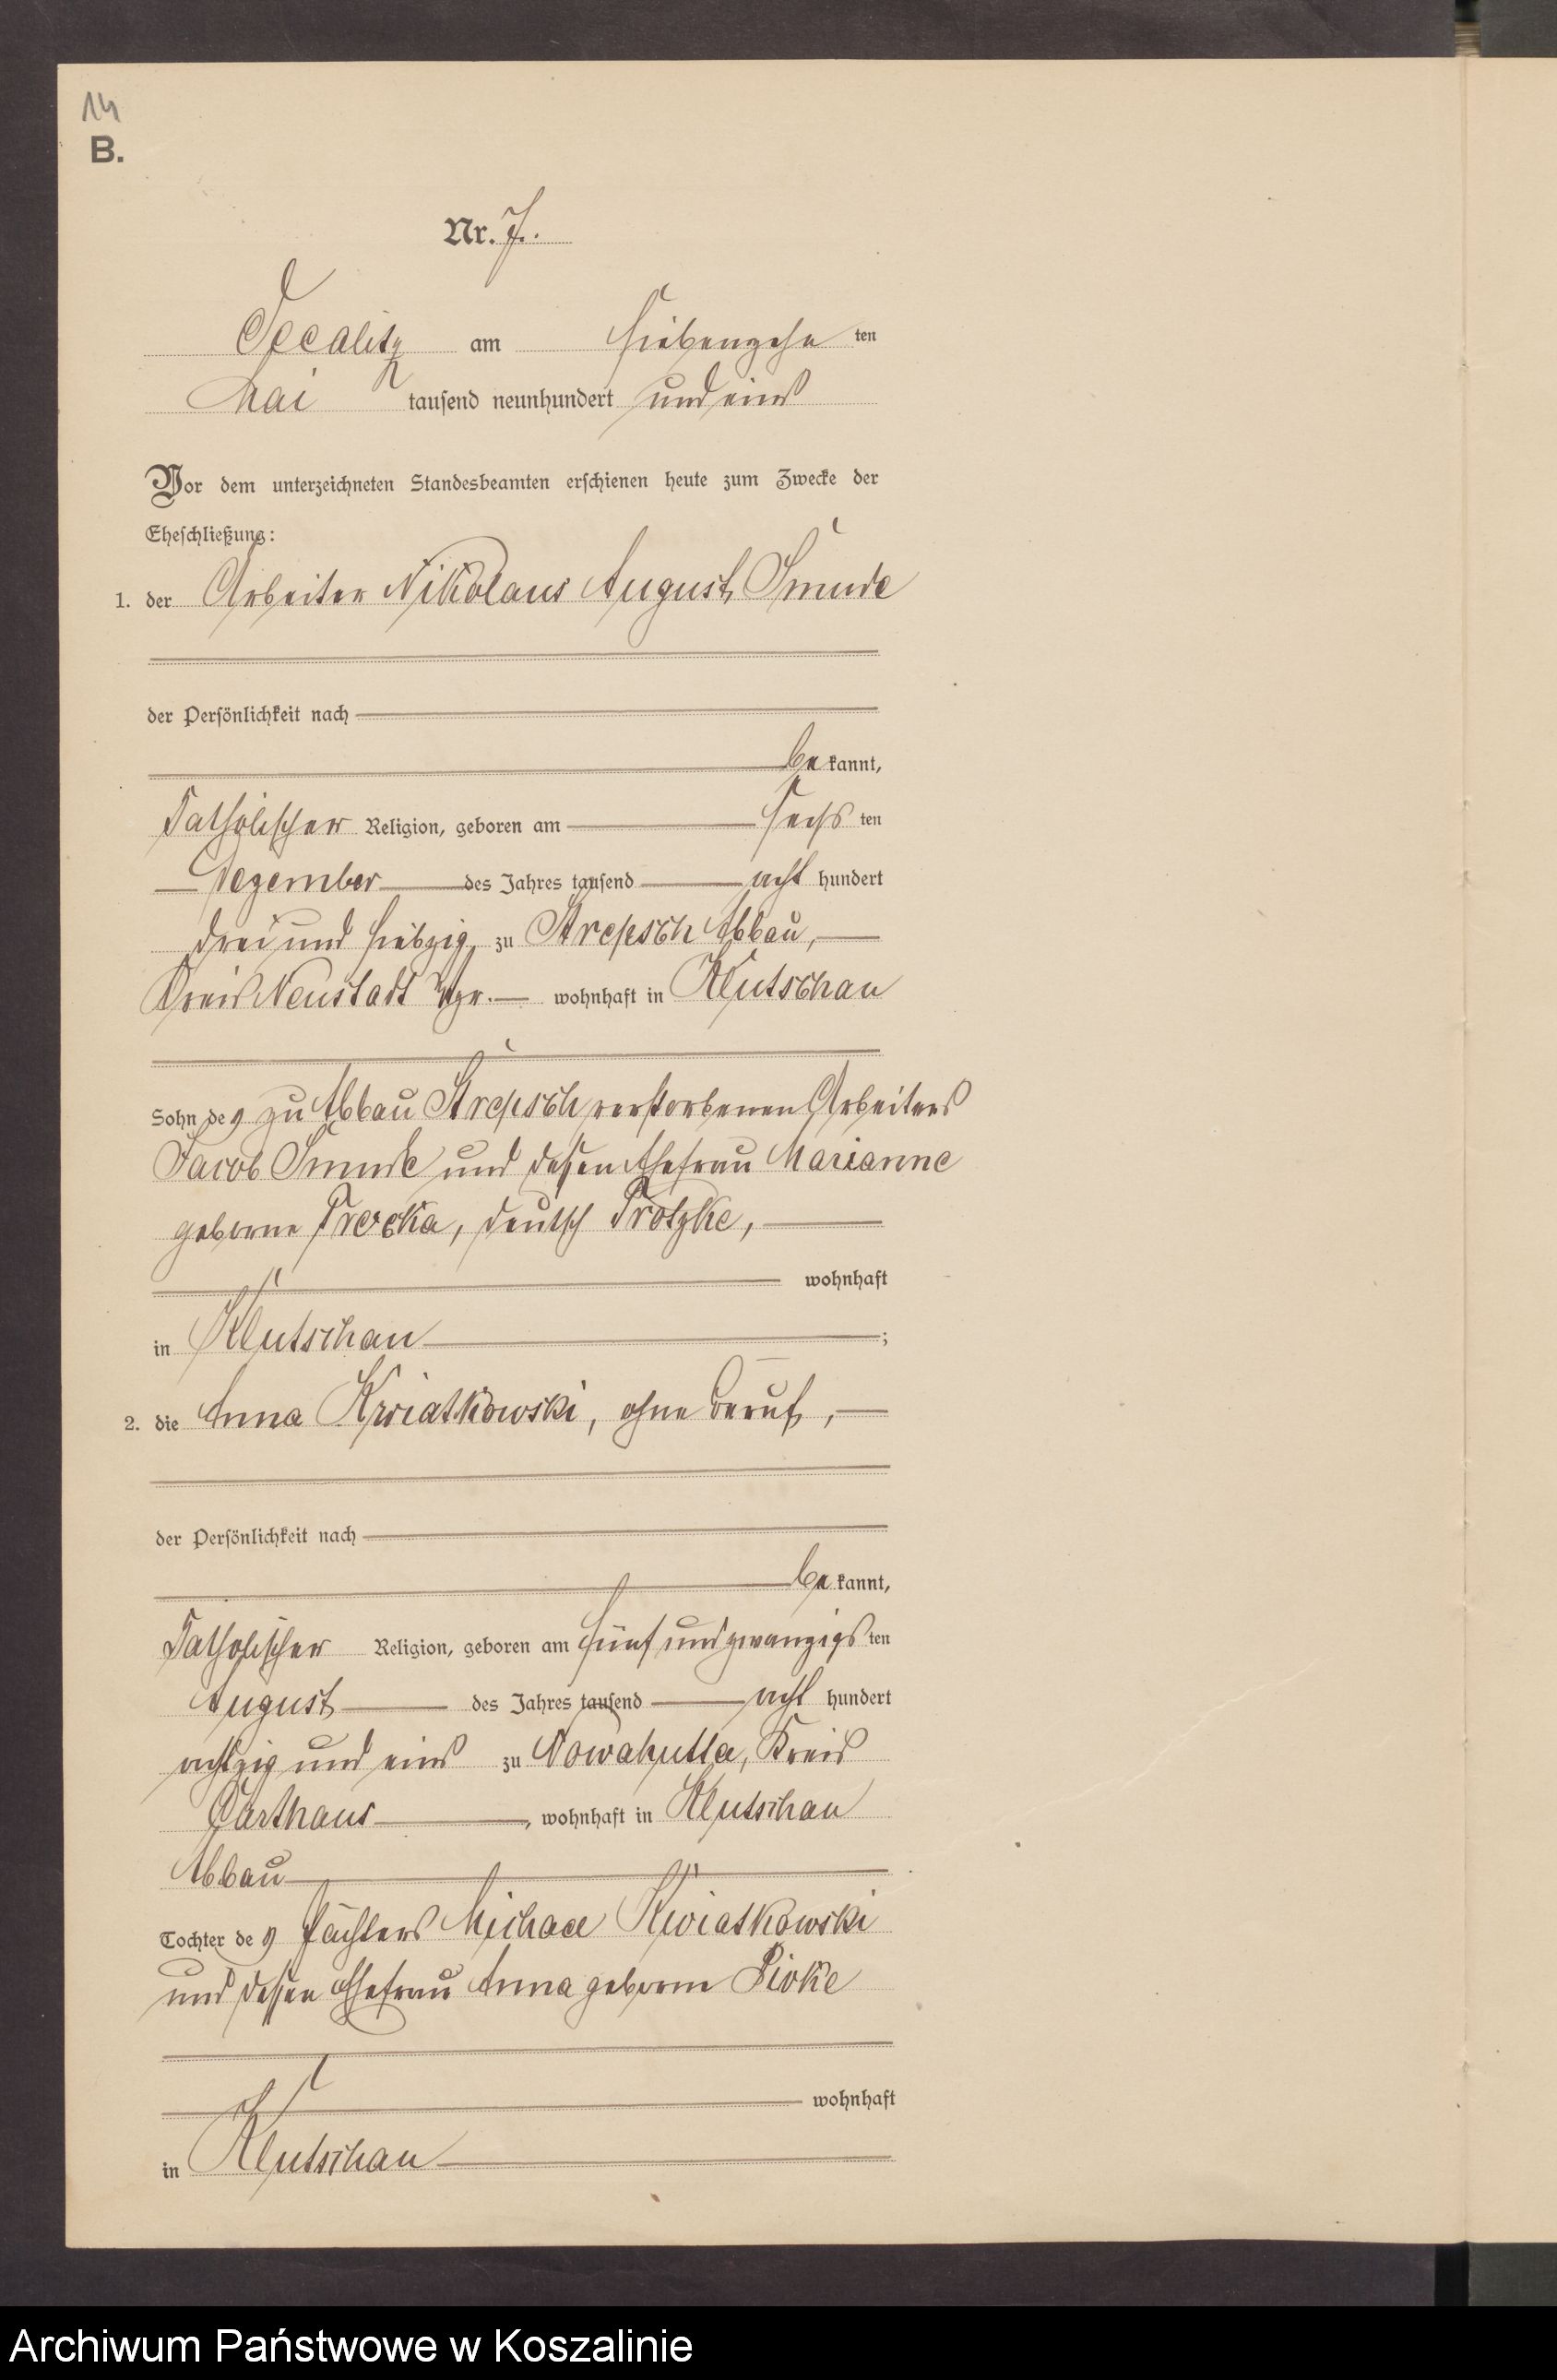 14
B.
Nr. 7.
am siebenzehn ten
Mai tausend neunhundert und eins
Vor dem unterzeichneten Standesbeamten erschienen heute zum Zwecke der
Eheschließung:
1. der Arbeiter Nikolaus August Smude
der Persönlichkeit nach
be kannt,
katholischer Religion, geboren am sechs ten
Dezember des Jahres tausend acht hundert
drei und siebzig, zu Strepsch Abbau,
Kreis Neustadt Wpr. wohnhaft in Klutschau
Sohn des zu Abbau Strepsch verstorbenen Arbeiters
Jacob Smude und dessen Ehefrau Marianne
geborne deutsch Trotzke,
wohnhaft
in Klutschau ;
2. die Anna Kwiatkowski, ohne Beruf,
der Persönlichkeit nach
be kannt,
katholischer Religion, geboren am fünf und zwanzigs ten
August des Jahres tausend acht hundert
achtzig und eins zu Nowahutta, Kreis
Carthaus, wohnhaft in Klutschau
Abbau
Tochter des Pächters Michael Kwiatkowski
und dessen Ehefrau Anna geborne
wohnhaft
in Klutschau
Archiwum Państwowe w Koszalinie